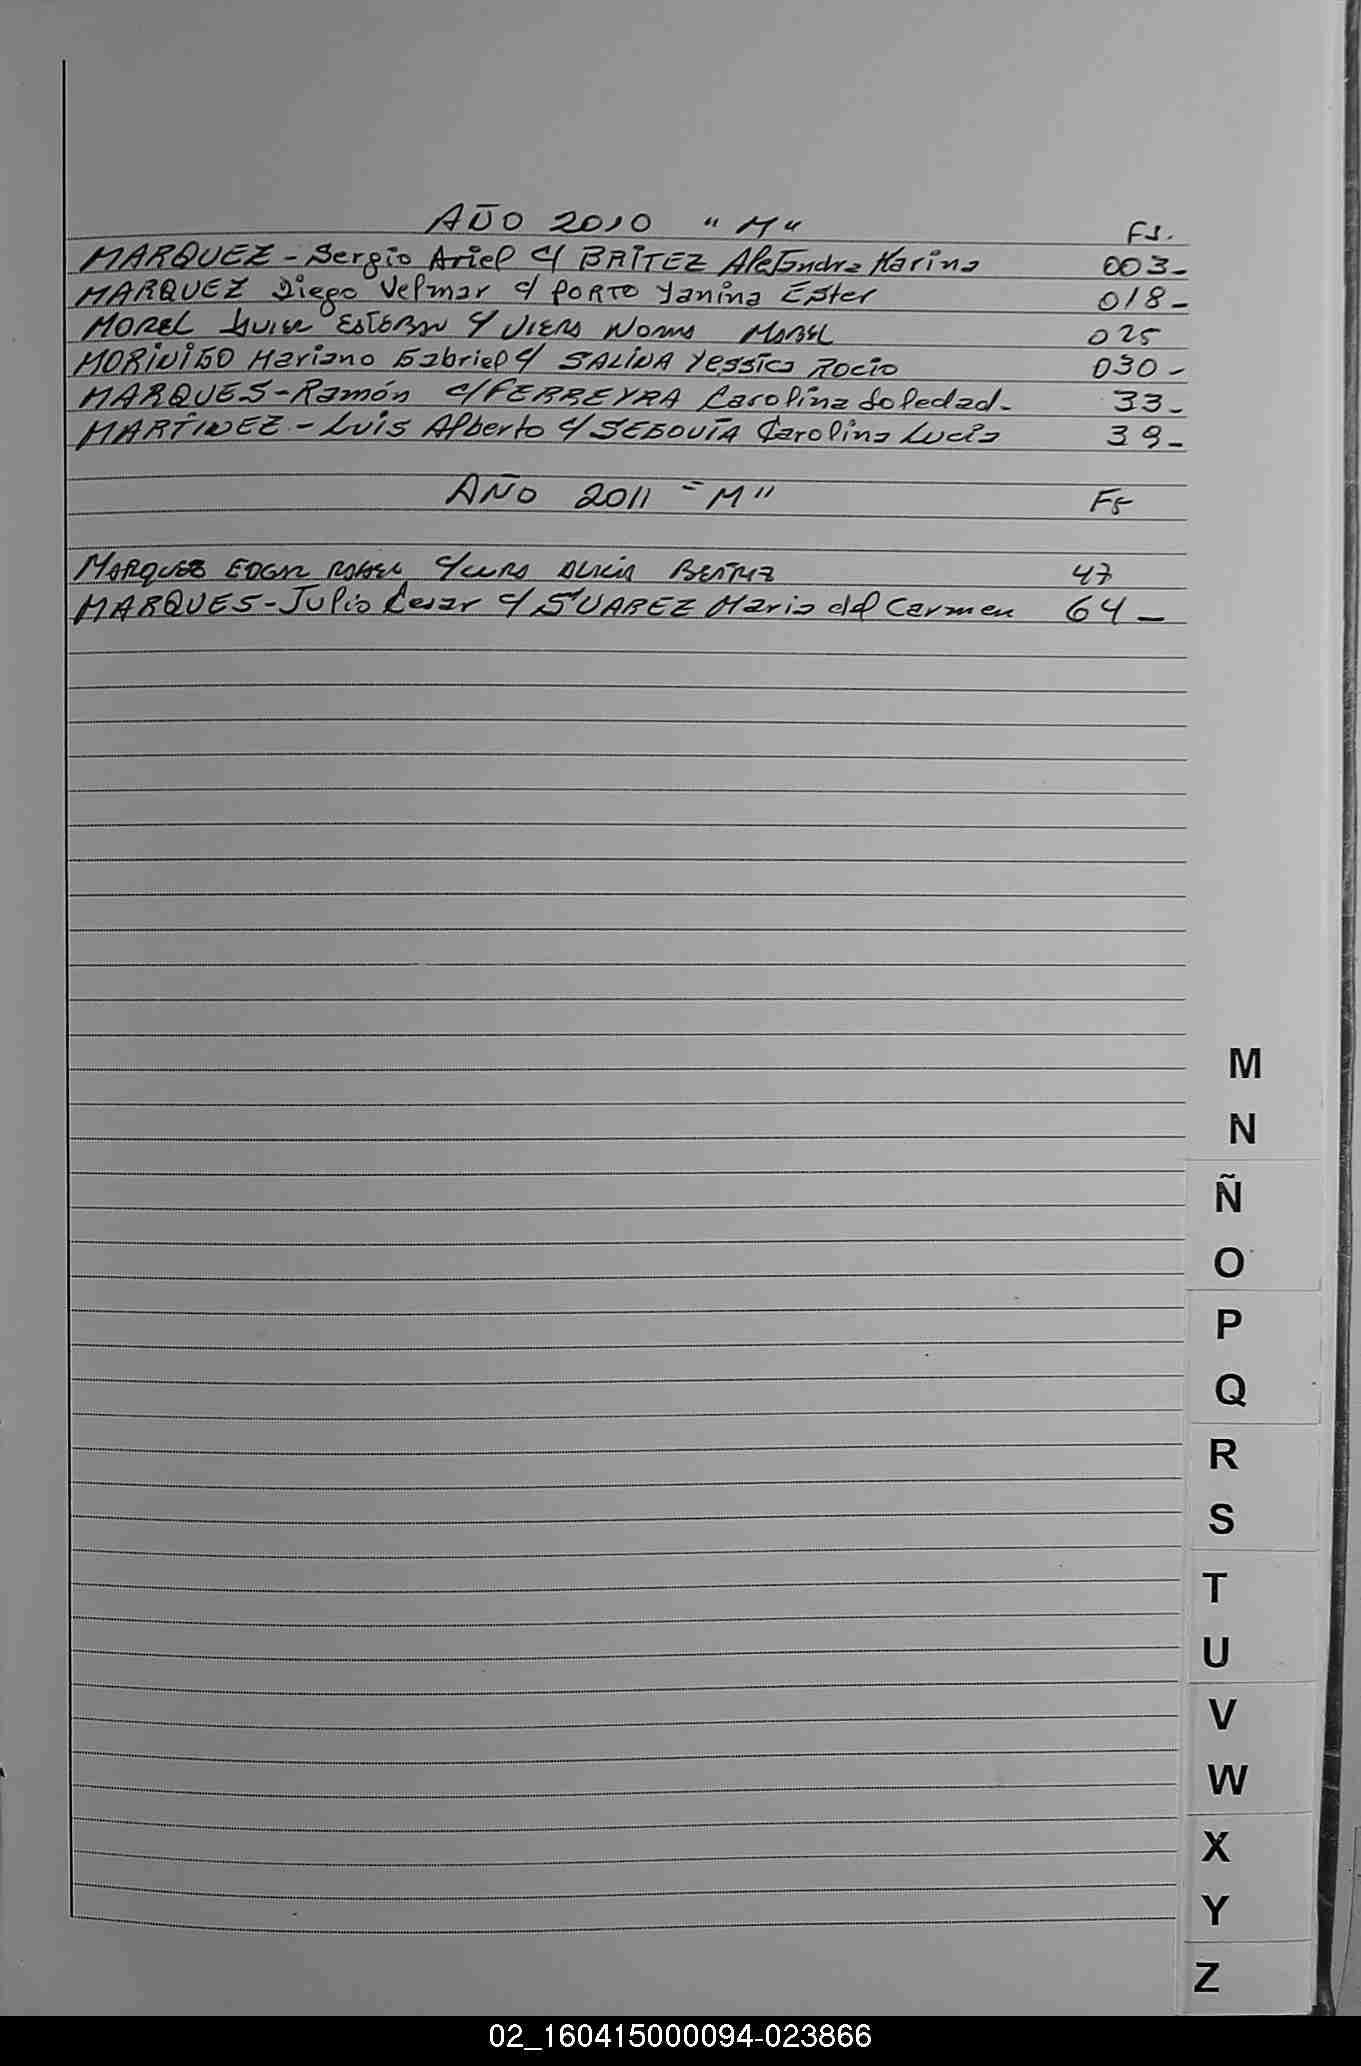 AÑO 2010 "M" Fs.
MARQUEZ - Sergio Ariel c/ BRÍTEZ Alejandra Karina 003-
MARQUEZ Diego Velmar c/ PORTO Yanina Ester 018-
MOREL ESTEBAN c/ NORMA MABEL 025
MORINIGO Mariano Gabriel c/ SALINA Yessica Rocio 030-
MARQUES - Ramón c/ FERREYRA Carolina Soledad- 33-
MARTÍNEZ - Luis Alberto c/ SEGOVÍA Carolina Lucia 39-
AÑO 2011 "M" Fs
MARQUEZ EDGAR c/ ALICIA BEATRIZ 47
MARQUES - Julio Cesar c/ SUAREZ Maria del Carmen 64-
M
N
Ñ
O
P
Q
R
S
T
U
V
W
X
Y
Z
02_160415000094-023866